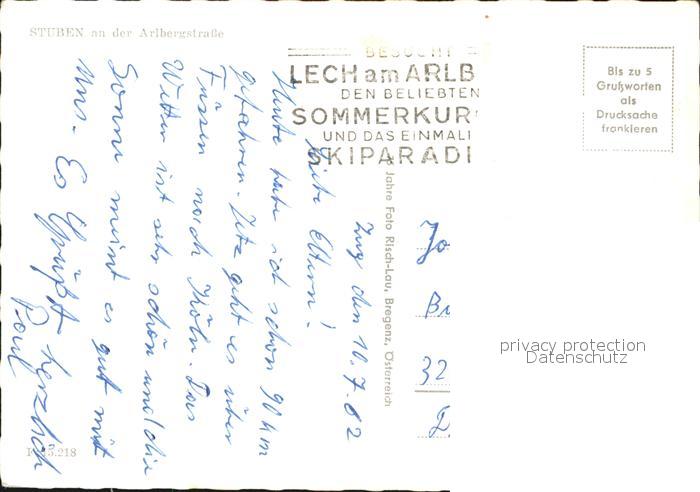 STUBEN an der Arlbergstraße
BESUCHT
LECH am ARLB
DEN BELIEBTEN
SOMMERKUR
UND DAS EINMALI
SKIPARADI
Bis zu 5
Grußworten
als
Drucksache
frankieren
Jahre Foto Risch-Lau, Bregenz, Österreich
Zug den 10.7.62
Eltern!
Heute habe ich schon 90 km
gefahren. Jetz geht es über
Füssen nach Köln. Das
Wetter ist sehr schön und die
Sonne meint es gut mit
uns. Es Grüßt herzlich
Paul
Jo
Br
32
privacy protection
Datenschutz
5.218